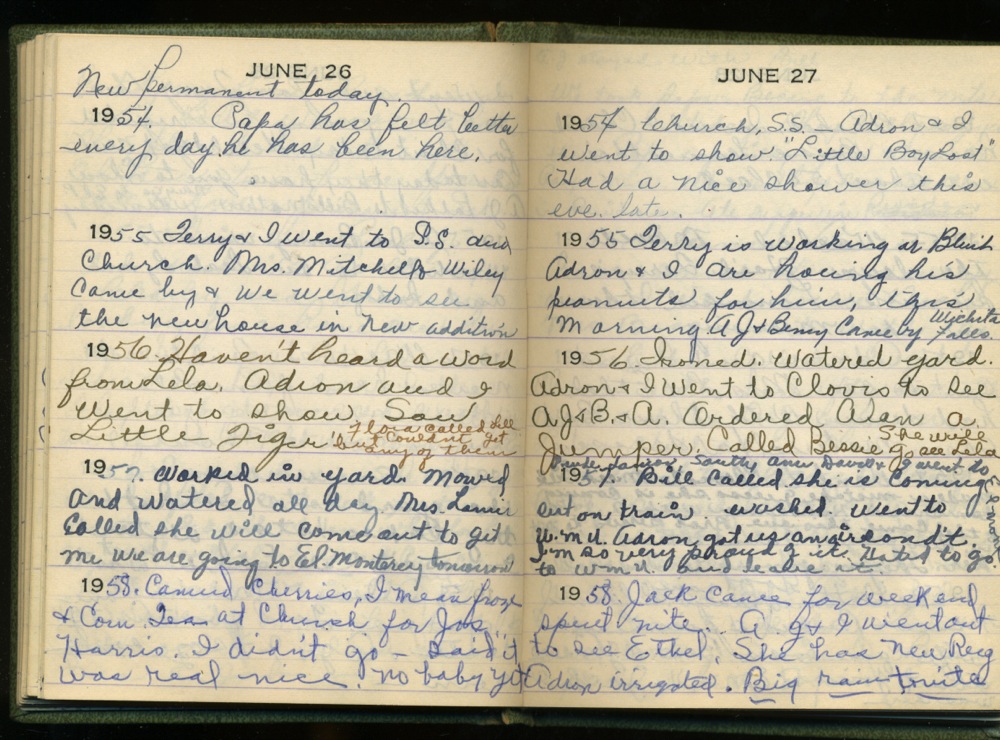 JUNE 26
New permanent today.
1954. Papa has felt better
every day he has been here.
1955 Terry & I went to S.S. and
Church. Mrs. Mitchell & Wiley
came by & we went to see
the new house in new addition
1956. Haven't heard a word
from Lela. Adron and I
went to show. Saw
Little Tiger
Flora called Lela
but couldn't get
any of them
1957. worked in yard. Mowed
and watered all day Mrs. Lanier
called she will come out to get
me we are going to El Monterey tomorrow
1958. Canned Cherries, I mean froze
& Corn. Tea at Church for Jas
Harris. I didn't go - said it
was real nice. no baby yet
JUNE 27
1954 Church, S.S. - Adron & I
went to show "Little Boy Lost"
Had a nice shower this
eve. late.
1955 Terry is working at
Adron & I are hoeing his
peanuts for him, this
morning AJ & Benny came by Wichita
Falls.
1956. Ironed. Watered yard.
Adron & I went to Clovis to see
AJ & B. & A. Ordered Alan a
Jumper. Called Bessie She will
go see Lela
Ann David & I went to
1957. Bill called she is coming
out on train washed. went to
W.M.U. Adron got us an aircondt.
I'm so very proud of it. Hated to go
to W.M.U. and leave it.
1958. Jack came for weekend
spent nite. A.J. & I went out
to see Ethel. She has new Rug
Adron irrigated. Big rain tonite